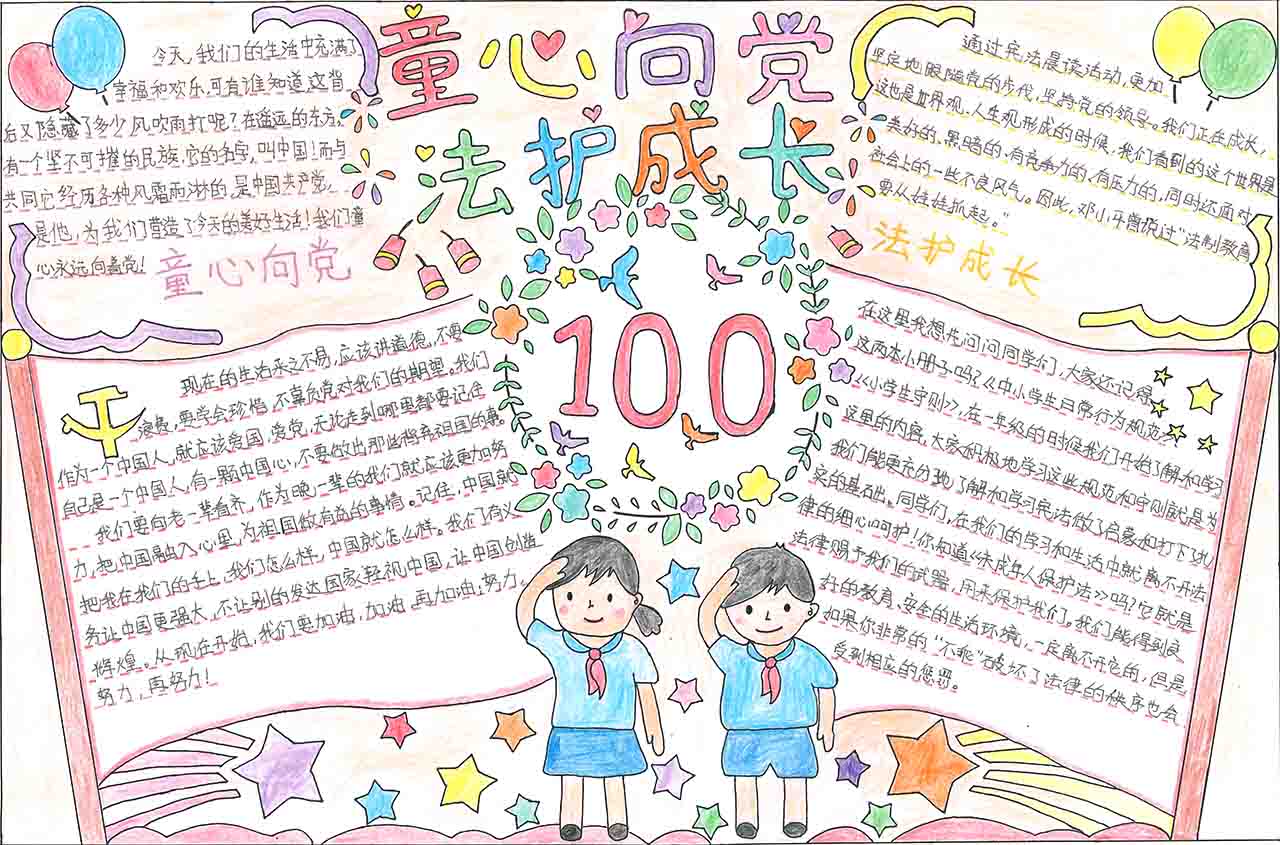 童心向党
法护成长
今天,我们的生活中充满了
幸福和欢乐,可有谁知道,这背
后又隐藏了多少风吹雨打呢?在遥远的东方,
有一个坚不可摧的民族,它的名字,叫中国!而与
共同它经历各种风霜雨淋的,是中国共产党,
是他,为我们营造了今天的美好生活!我们童
心永远向着党!
童心向党
通过宪法晨读活动,更加
坚定地跟随党的步伐,坚持党的领导。我们正在成长,
这也是世界观、人生观形成的时候,我们看到的这个世界是
美好的、黑暗的、有竞争力的、有压力的,同时还面对
社会上的一些不良风气。因此,邓小平曾说过"法制教育
要从娃娃抓起。"
法护成长
100
现在的生活来之不易,应该讲道德,不要
浪费,要学会珍惜,不辜负党对我们的期望。我们
作为一个中国人,就应该爱国,爱党,无论走到哪里都要记住
自己是一个中国人,有一颗中国心,不要做出那些背弃祖国的事。
我们要向老一辈看齐,作为晚一辈的我们就应该更加努
力,把中国融入心里,为祖国做有益的事情。记住,中国就
把我在我们的手上,我们怎么样,中国就怎么样。我们有义
务让中国更强大,不让别的发达国家轻视中国,让中国创造
辉煌。从现在开始,我们要加油,加油,再加油;努力。
努力,再努力!
在这里我想先问问同学们,大家还记得
这两本小册子吗?《中小学生日常行为规范》
《小学生守则》,在一年级的时候我们开始了解和学习
这里的内容,大家积极地学习这些规范和守则就是为
我们能更充分地了解和学习宪法做了启蒙和打下坚
实的基础。同学们,在我们的学习和生活中就离不开法
律的细心呵护!你知道《未成年人保护法》吗?它就是
法律赐予我们的武器,用来保护我们。我们能得到良
好的教育、安全的生活环境,一定离不开它的,但是
如果你非常的"不乖"破坏了法律的秩序也会
受到相应的惩罚。